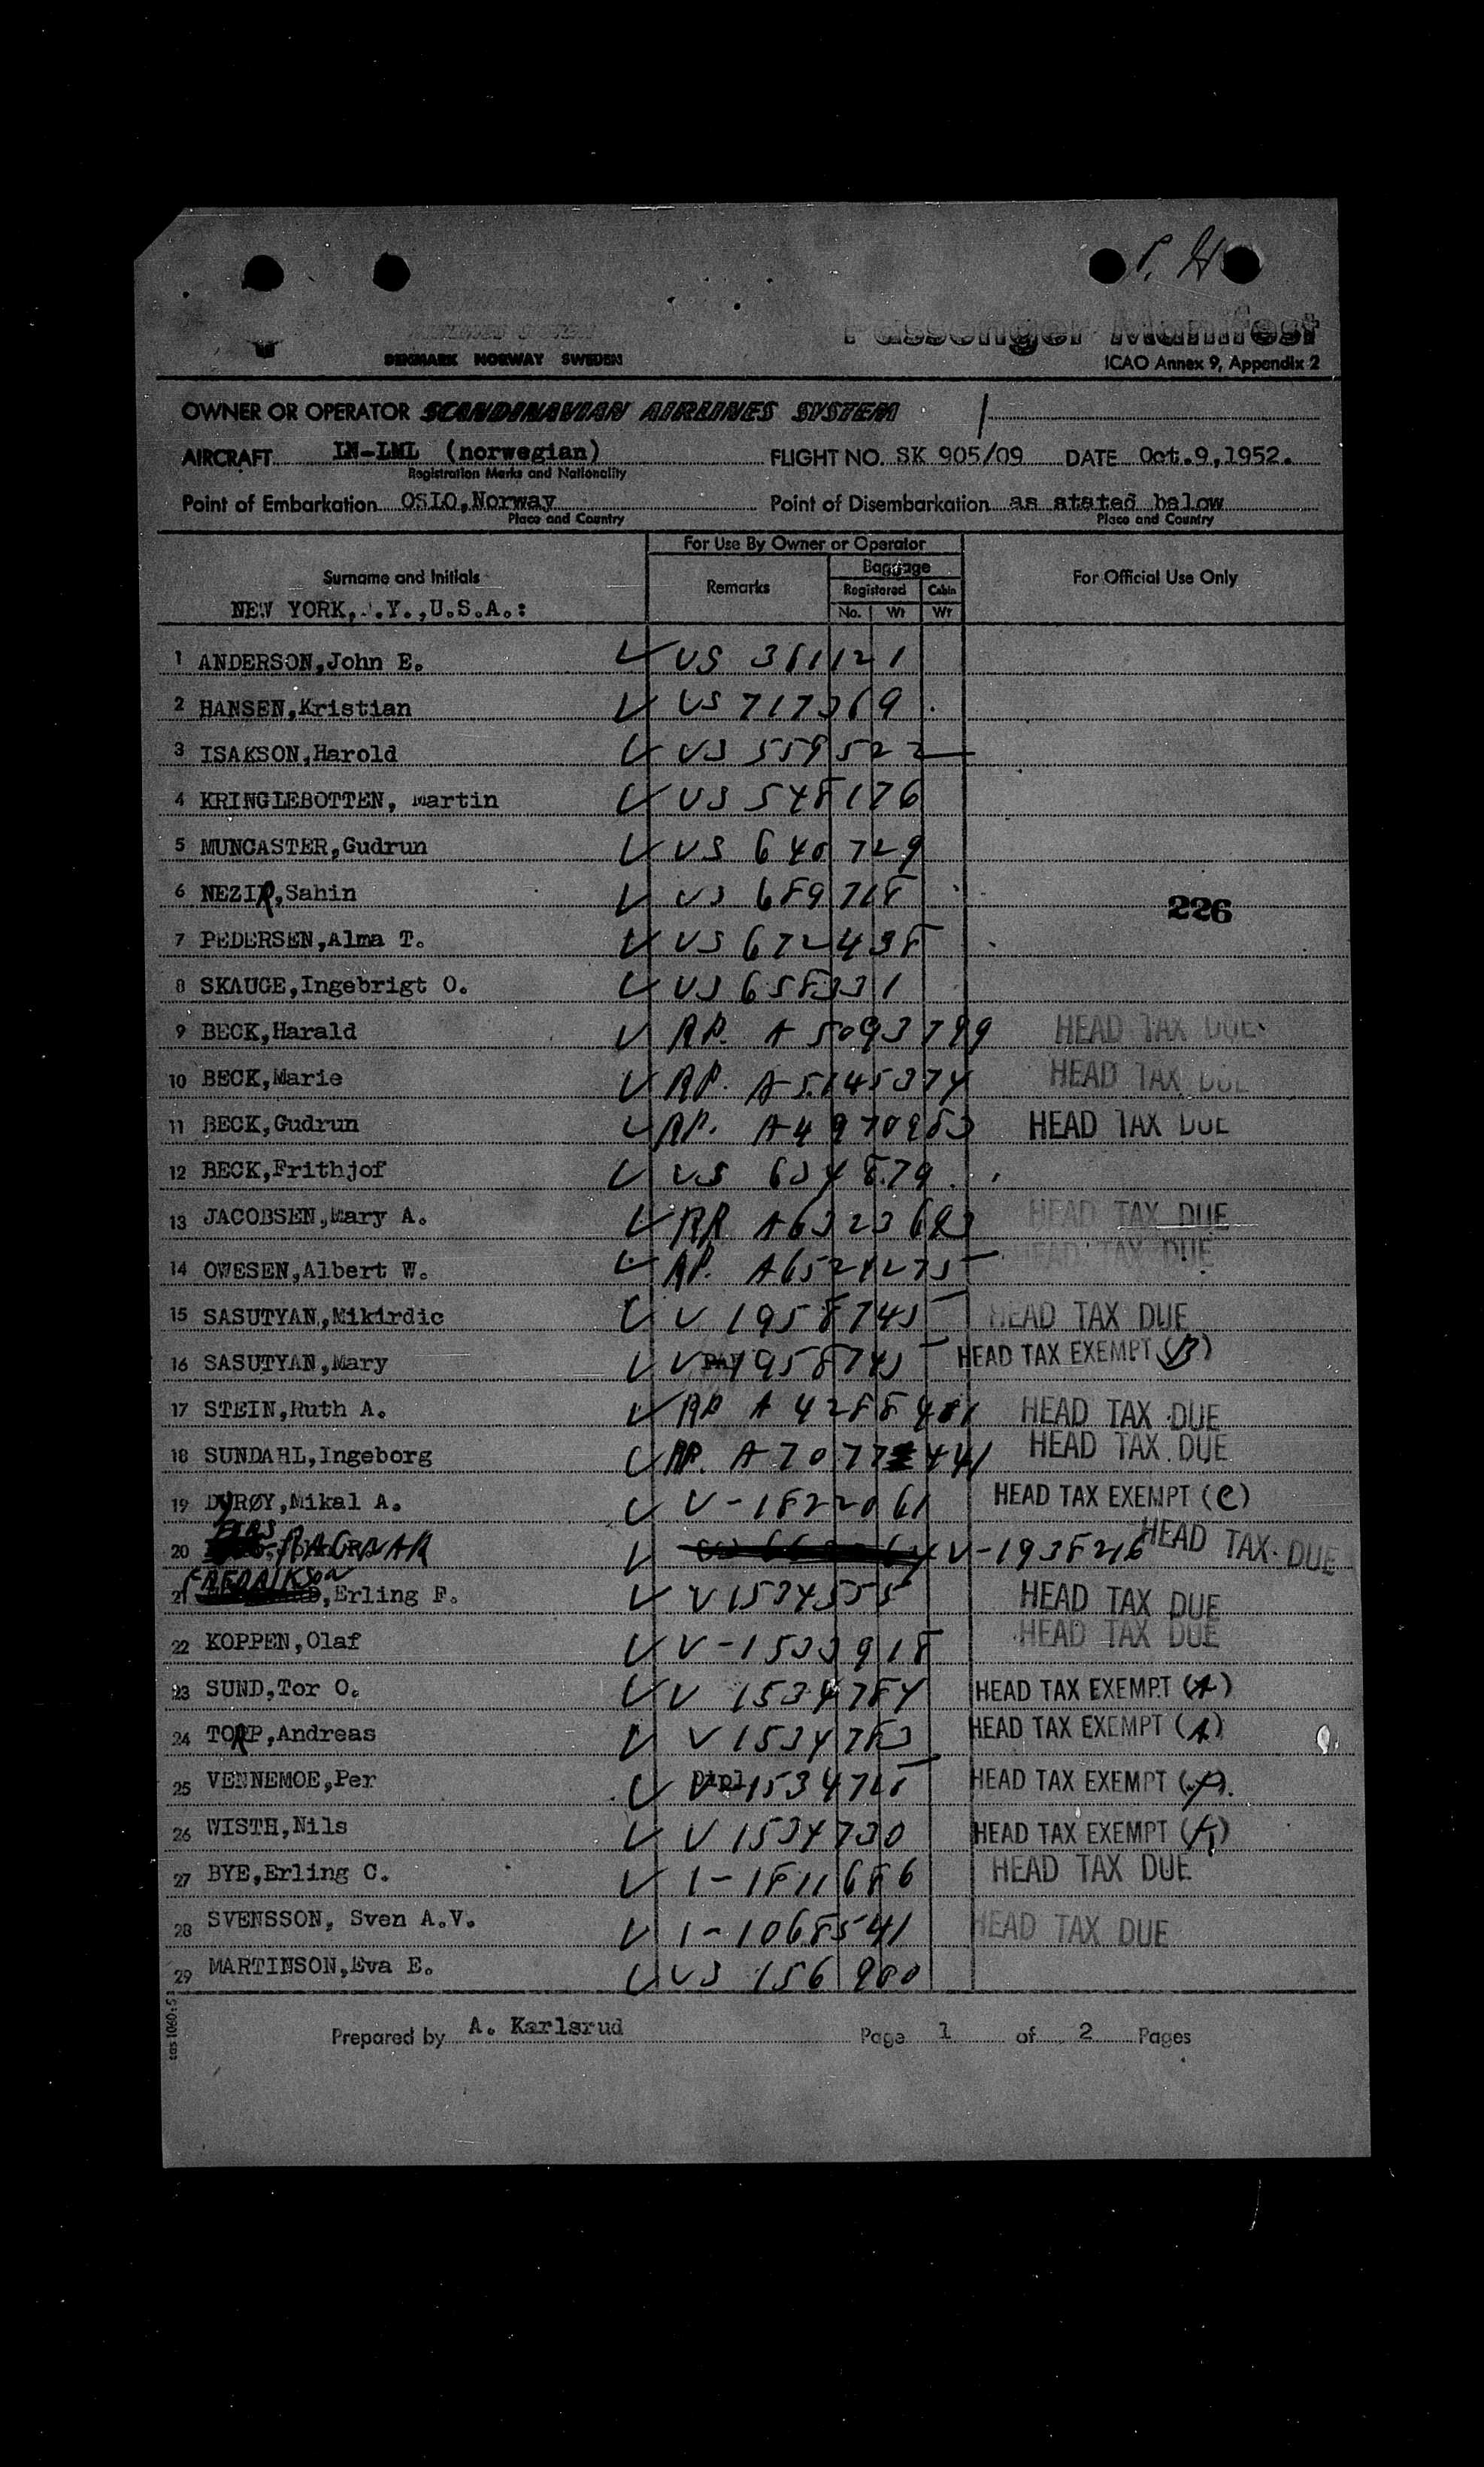 P. H
Passenger Manifest
DENMARK NORWAY SWEDEN
ICAO Annex 9, Appendix 2
OWNER OR OPERATOR SCANDINAVIAN AIRLINES SYSTEM
AIRCRAFT LN-LML (norwegian) FLIGHT NO. SK 905/09 DATE Oct.9,1952.
Registration Marks and Nationality
Point of Embarkation OSLO,Norway Point of Disembarkation as stated below
Place and Country Place and Country
For Use By Owner or Operator
Surname and Initials Remarks Baggage For Official Use Only
Registered Cabin
NEW YORK, .Y.,U.S.A.: No. Wt Wt
1 ANDERSON,John E. US 361121
2 HANSEN,Kristian US 717369
3 ISAKSON,Harold US 559522
4 KRINGLEBOTTEN, Martin US 548176
5 MUNCASTER,Gudrun US 640729
6 NEZIR,Sahin US 689718
226
7 PEDERSEN,Alma T. US 672438
8 SKAUGE,Ingebrigt O. US 658331
9 BECK,Harald RP. A 5093799 HEAD TAX DUE
10 BECK,Marie RP. A5145374 HEAD TAX DUE
11 BECK,Gudrun RP. HEAD TAX DUE
12 BECK,Frithjof US 634879
13 JACOBSEN,Mary A. RP A6323683 HEAD TAX DUE
14 OWESEN,Albert W. RP. A6524275 HEAD TAX DUE
15 SASUTYAN,Mikirdic V 1958745 HEAD TAX DUE
16 SASUTYAN,Mary V 1958745 HEAD TAX EXEMPT (B)
17 STEIN,Ruth A. RP HEAD TAX DUE
18 SUNDAHL,Ingeborg RP. A7077441 HEAD TAX DUE
19 DYRØY,Mikal A. V-1822061 HEAD TAX EXEMPT (C)
20 RAGNAR V-1938216 HEAD TAX DUE
21 FREDRIKSON,Erling F. V1534555 HEAD TAX DUE
22 KOPPEN,Olaf V-1533918 HEAD TAX DUE
23 SUND,Tor O. V 1534784 HEAD TAX EXEMPT (A)
24 TORP,Andreas V 1534783 HEAD TAX EXEMPT (A)
25 VENNEMOE,Per Dipl HEAD TAX EXEMPT (A)
26 WISTH,Nils V 1534730 HEAD TAX EXEMPT (A)
27 BYE,Erling C. 1-1811686 HEAD TAX DUE
28 SVENSSON, Sven A.V. 1-1068541 HEAD TAX DUE
29 MARTINSON,Eva E. US 156900
sas 1060:5
Prepared by A. Karlsrud Page 1 of 2 Pages